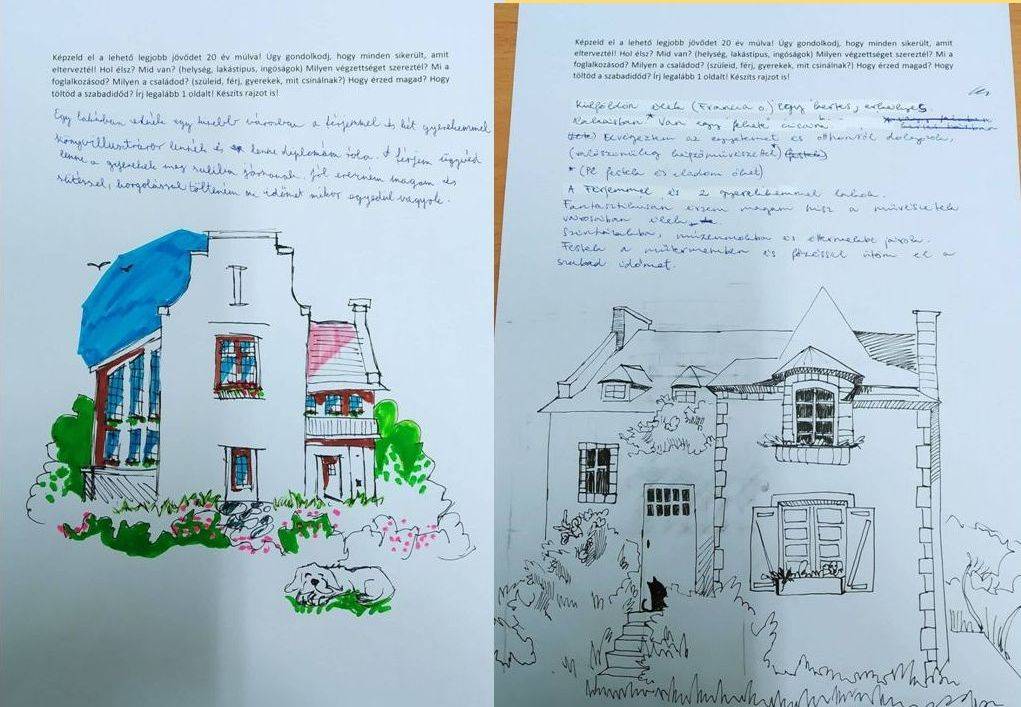 Képzeld el a lehető legjobb jövődet 20 év múlva! Úgy gondolkodj, hogy minden sikerült, amit
elterveztél! Hol élsz? Mid van? (helység, lakástípus, ingóságok) Milyen végzettséget szereztél? Mi a
foglalkozásod? Milyen a családod? (szüleid, férj, gyerekek, mit csinálnak?) Hogy érzed magad? Hogy
töltöd a szabadidőd? Írj legalább 1 oldalt! Készíts rajzot is!
Egy lakásban élnék egy kisebb városban a férjemmel és két gyerekemmel
könyvillusztrátor lennék és lenne diplomám róla. A férjem ügyvéd
lenne a gyerekek meg suliba járnának. Jól érezném magam és
sütéssel, horgolással tölteném az időmet mikor egyedül vagyok.
Képzeld el a lehető legjobb jövődet 20 év múlva! Úgy gondolkodj, hogy minden sikerült, amit
elterveztél! Hol élsz? Mid van? (helység, lakástípus, ingóságok) Milyen végzettséget szereztél? Mi a
foglalkozásod? Milyen a családod? (szüleid, férj, gyerekek, mit csinálnak?) Hogy érzed magad? Hogy
töltöd a szabadidőd? Írj legalább 1 oldalt! Készíts rajzot is!
külföldön élek (Francia o.) egy kertes, erkélyes
lakásban * Van egy fekete cicám
Bevégeztem az egyetemet és otthonról dolgozok,
(valószínűleg képzőművészettel *)
* (Pl festek és eladom őket)
A Férjemmel és 2 gyerekemmel lakok.
Fantasztikusan érzem magam hisz a művészetek
városában élek
Színházakba, múzeumokba és éttermekbe járok.
Festek a műtermemben és főzéssel ütöm el a
szabad időmet.